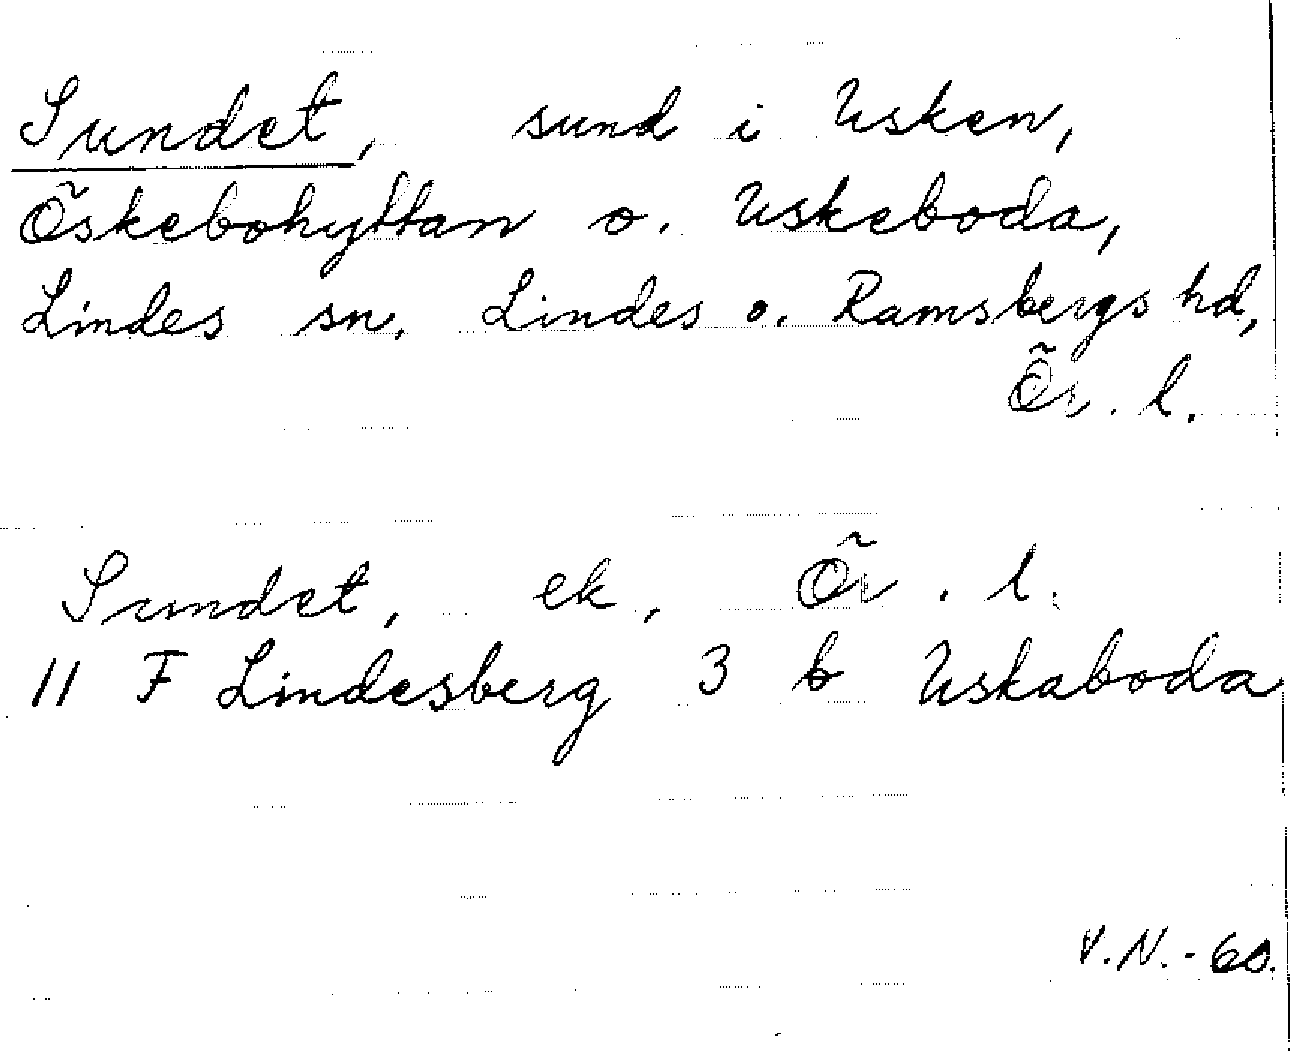 Sundet, sund i Usken,
Öskebohyttan o. Uskeboda,
Lindes sn, Lindes o. Ramsbergs hd,
Ör. l.
Sundet, ek, Ör. l.
11 F Lindesberg 3 b Uskaboda
V.N.-60.